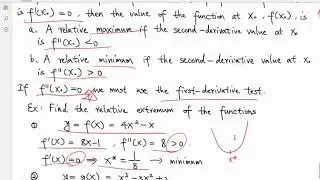 is f'(x₀) = 0, then the value of the function at x₀, f(x₀), is
a. A relative maximum if the second-derivative value at x₀
is f''(x₀) < 0
b. A relative minimum if the second-derivative value at x₀
is f''(x₀) > 0
If f''(x₀) = 0 we must use the first-derivative test.
Ex: Find the relative extremum of the functions
① y = f(x) = 4x² - x
f'(x) = 8x - 1, f''(x) = 8 > 0
f'(x) = 0 → x* = 1/8 → minimum
x*
② y = g(x) = x³ - 3x² +